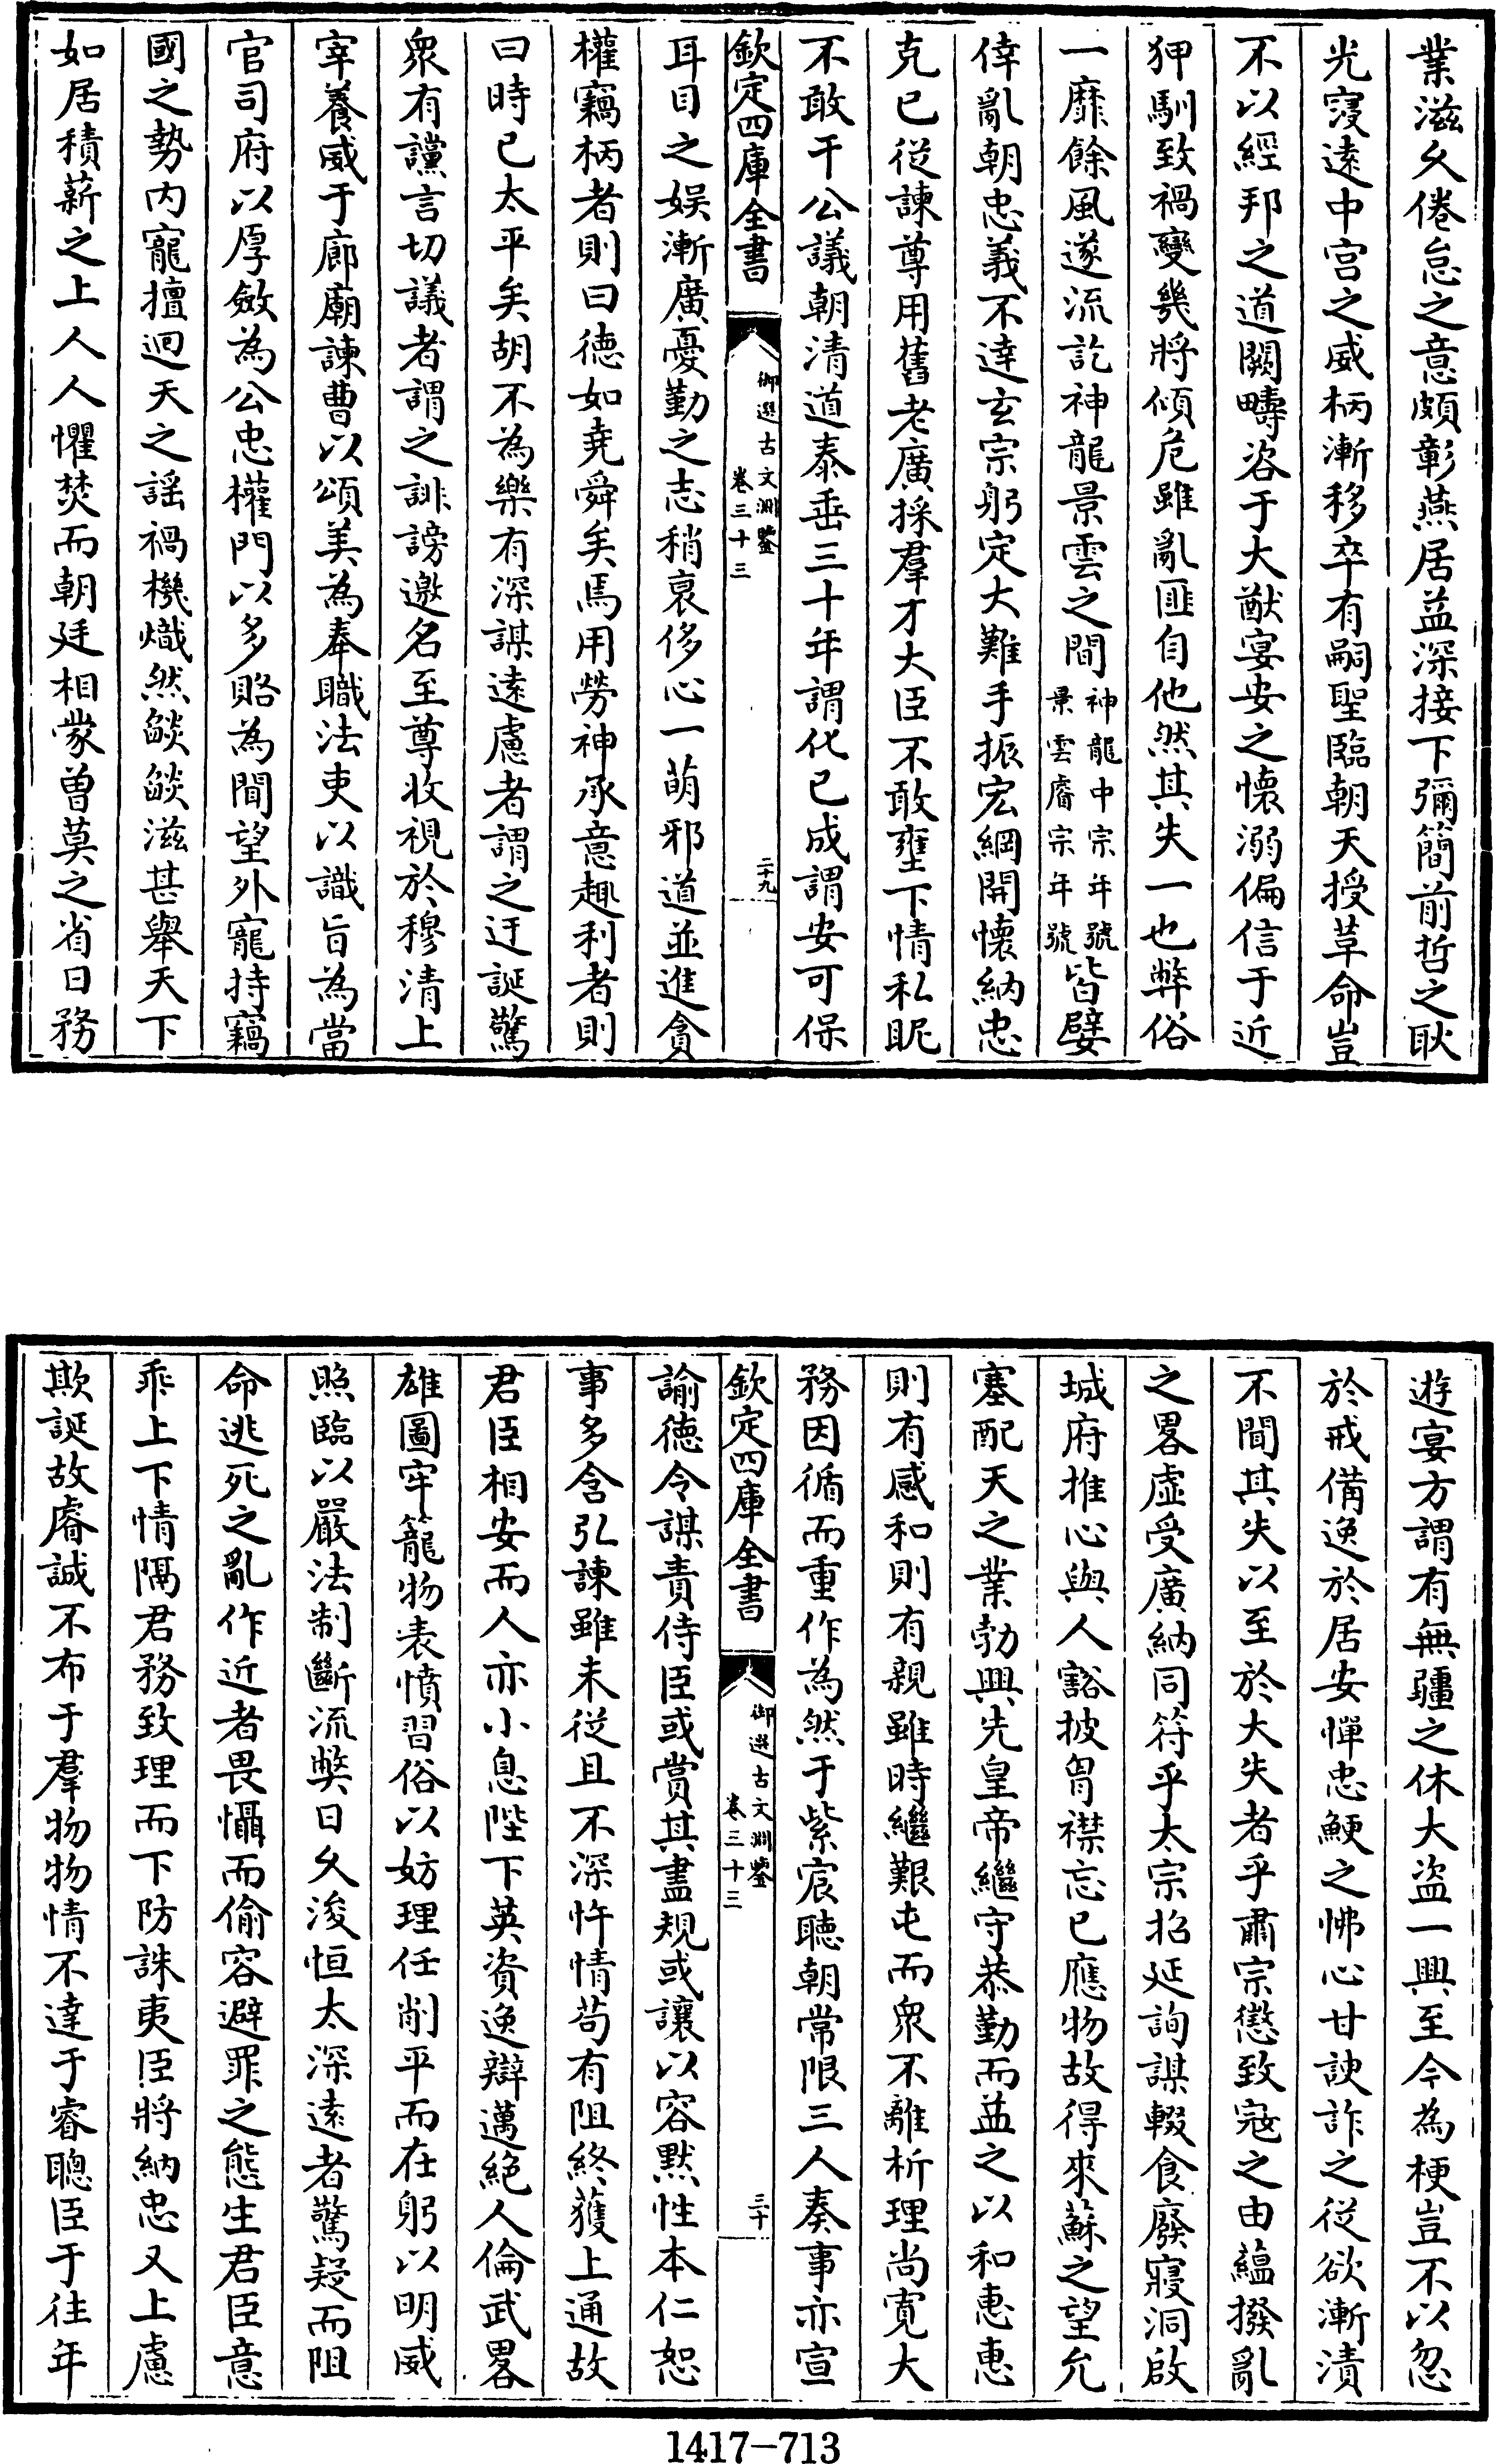 業滋久倦怠之意頗彰燕居益深接下彌簡前哲之耿
光寖遠中宫之威柄漸移卒有嗣聖臨朝天授革命豈
不以經邦之道闕疇咨于大猷宴安之懷溺偏信于近
狎馴致禍變幾將傾危雖亂匪自他然其失一也弊俗
一靡餘風遂流訖神龍景雲之間神龍中宗年號景雲睿宗年號皆嬖
倖亂朝忠義不達玄宗躬定大難手振宏綱開懷納忠
克已從諫尊用舊老廣採羣才大臣不敢壅下情私昵
不敢干公議朝清道泰垂三十年謂化已成謂安可保
欽定四庫全書
御選古文淵鑒
卷三十三
二十九
耳目之娛漸廣憂勤之志稍衰侈心一萌邪道並進貪
權竊柄者則曰徳如堯舜矣焉用勞神承意趣利者則
曰時已太平矣胡不為樂有深謀遠慮者謂之迂誕驚
衆有讜言切議者謂之誹謗邀名至尊收視於穆清上
宰養威于廊廟諫曹以頌美為奉職法吏以識旨為當
官司府以厚斂為公忠權門以多賂為聞望外寵持竊
國之勢內寵擅迴天之謡禍機熾然燄燄滋甚舉天下
如居積薪之上人人懼焚而朝廷相蒙曾莫之省日務
遊宴方謂有無疆之休大盜一興至今為梗豈不以忽
於戒備逸於居安憚忠鯁之怫心甘諛詐之從欲漸漬
不聞其失以至於大失者乎肅宗懲致寇之由藴撥亂
之畧虛受廣納同符乎太宗招延詢謀輟食廢寢洞啟
城府推心與人豁披胷襟忘已應物故得來蘇之望允
塞配天之業勃興先皇帝繼守恭勤而益之以和惠惠
則有感和則有親雖時繼艱屯而衆不離析理尚寛大
務因循而重作為然于紫宸聽朝常限三人奏事亦宣
欽定四庫全書
御選古文淵鑒
卷三十三
三十
諭徳令謀責侍臣或賞其盡規或讓以容黙性本仁恕
事多含弘諫雖未從且不深忤情苟有阻終獲上通故
君臣相安而人亦小息陛下英資逸辯邁絶人倫武畧
雄圖牢籠物表憤習俗以妨理任削平而在躬以明威
照臨以嚴法制斷流獘日久浚恒太深遠者驚疑而阻
命逃死之亂作近者畏懾而偷容避罪之態生君臣意
乖上下情隔君務致理而下防誅夷臣將納忠又上慮
欺誕故睿誠不布于羣物物情不達于睿聰臣于往年
1417—713